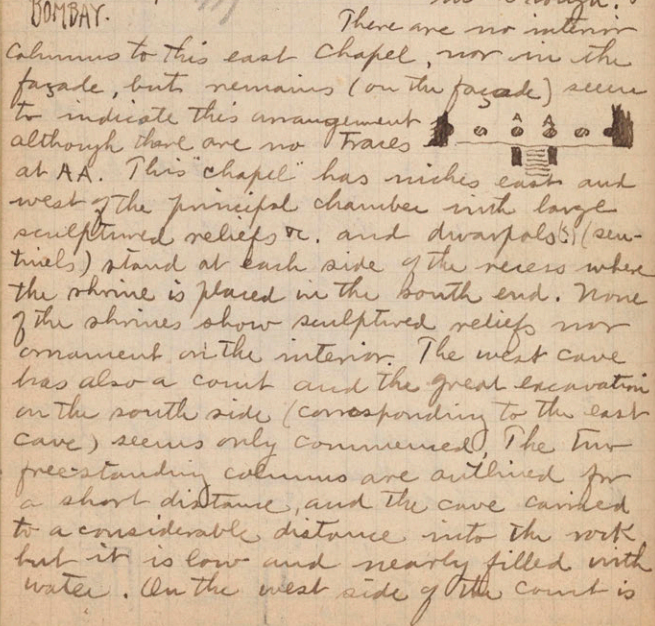 BOMBAY.
There are no interior
columns to this east chapel, nor in the
façade, but remains (on the façade) seem
to indicate this arrangement
A A
although there are no traces
at AA. This "chapel" has niches east and
west of the principal chamber with large
sculptured reliefs &c. and dwarpals(?) (sen-
tinels) stand at each side of the recess where
the shrine is placed in the south end. None
of the shrines show sculptured reliefs nor
ornament on the interior. The west cave
has also a court and the great excavation
on the south side (corresponding to the east
cave) seems only commenced. The two
free-standing columns are outlined for
a short distance, and the cave carried
to a considerable distance into the rock
but it is low and nearly filled with
water. On the west side of the court is